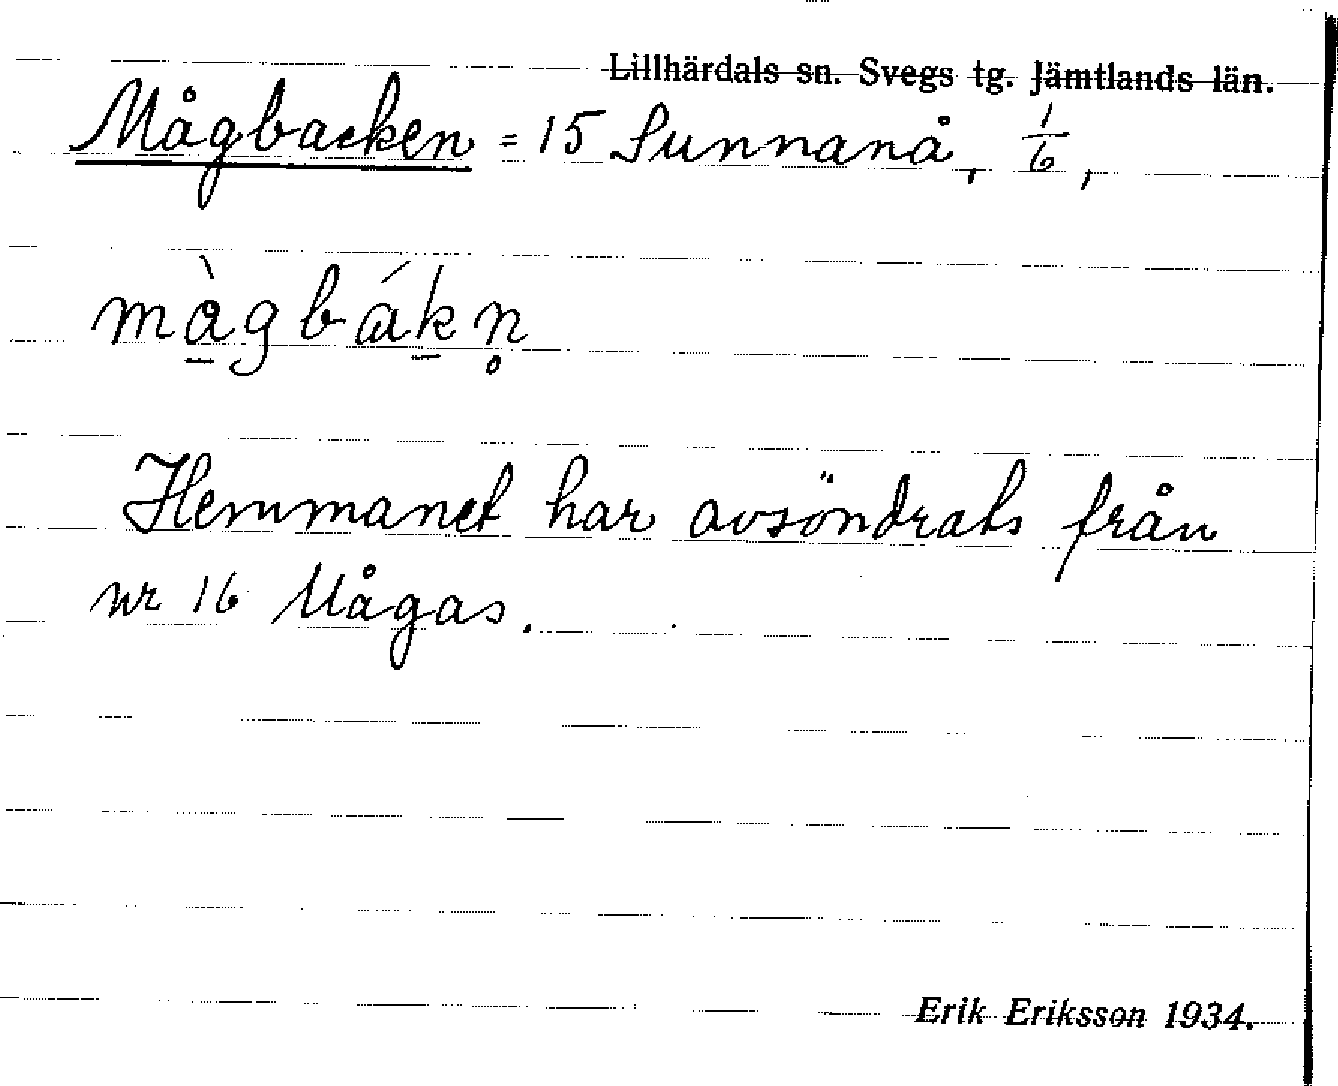 Lillhärdals sn. Svegs tg. Jämtlands län.
Mågbacken = 15 Sunnanå, 1/6,
må̱̀gbáḵn̥
Hemmanet har avsöndrats från
nr 16 Mågas.
Erik Eriksson 1934.